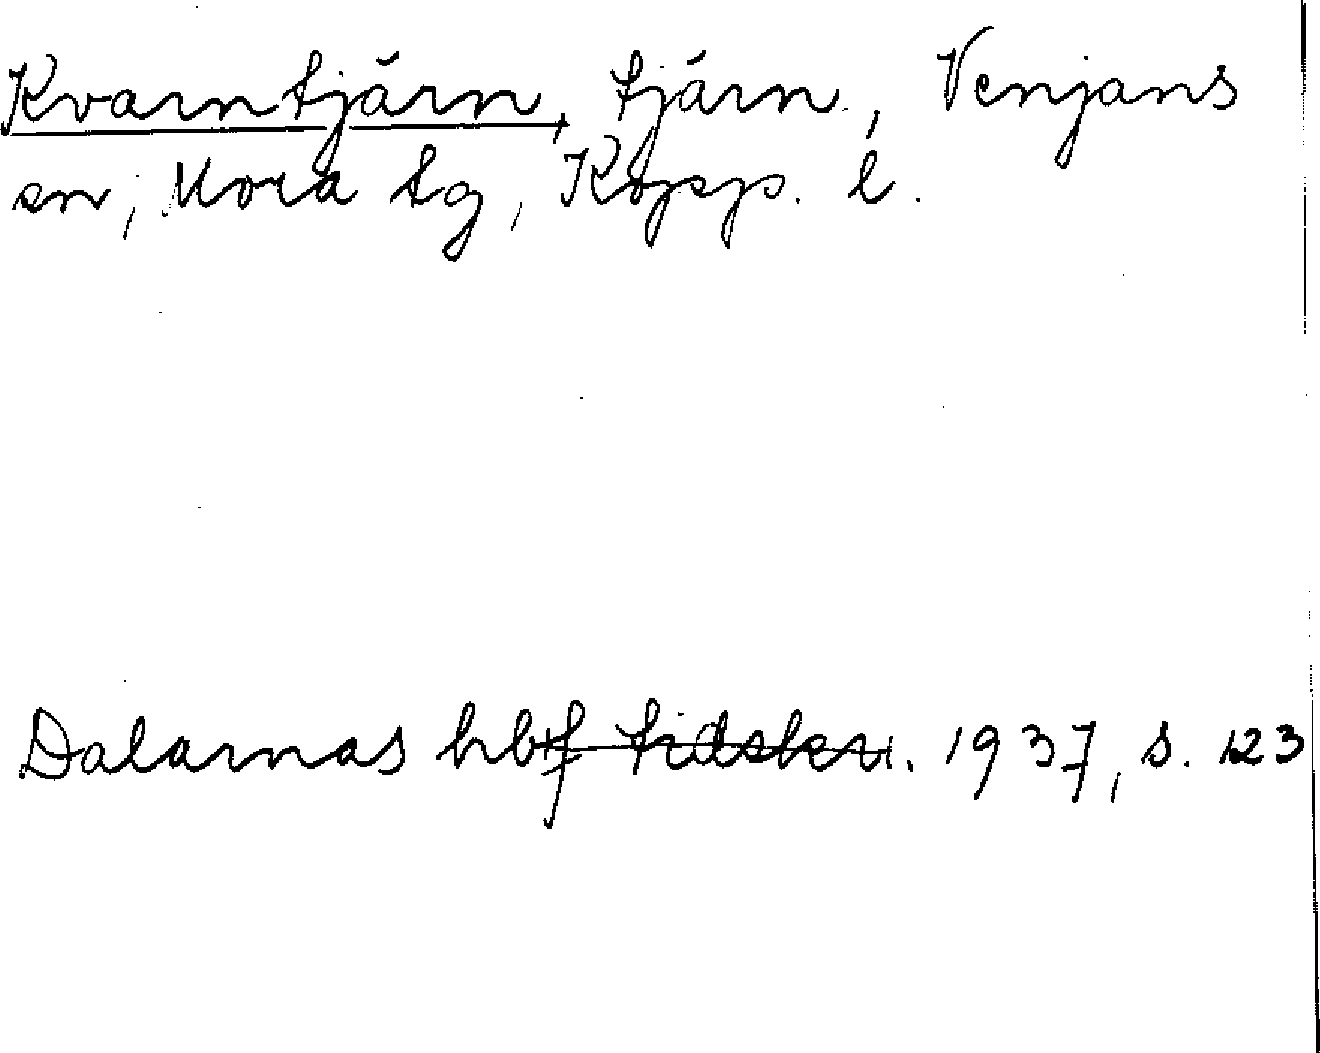 Kvarntjärn, tjärn, Venjans
sn, Mora tg, Kopp. l.
Dalarnas hbf tidskr. 1937, s. 123